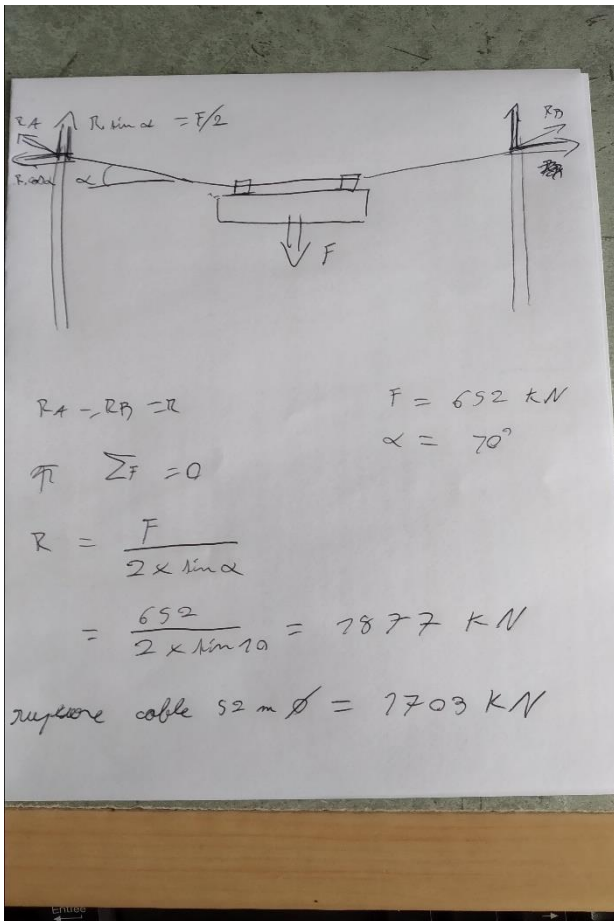 RA R sin α = F/2 RB
R cos α α
F
RA = RB = R F = 652 KN
α = 10°
ΣF = 0
R = F / 2 x sin α
= 652 / 2 x sin 10 = 1877 KN
rupture cable 52 m Ø = 1703 KN
Entrée